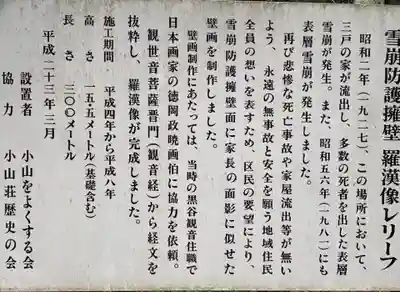 雪崩防護擁壁 羅漢像レリーフ
昭和二年(一九二七)、この場所において、
三戸の家が流出し、多数の死者を出した表層
雪崩が発生。また、昭和五六年(一九八一)にも
表層雪崩が発生しました。
再び悲惨な死亡事故や家屋流出等が無い
よう、永遠の無事故と安全を願う地域住民
全員の想いを表すため、区民の要望により、
雪崩防護擁壁面に家長の面影に似せた
壁画を制作しました。
壁画制作にあたっては、当時の黒谷観音住職で
日本画家の徳岡政暁画伯に協力を依頼。
観世音菩薩普門(観音経)から経文を
抜粋し、羅漢像が完成しました。
施工期間 平成四年から平成八年
高さ 一五五メートル(基礎含む)
長さ 三〇〇メートル
平成二十三年三月
設置者 小山をよくする会
協力 小山荘歴史の会